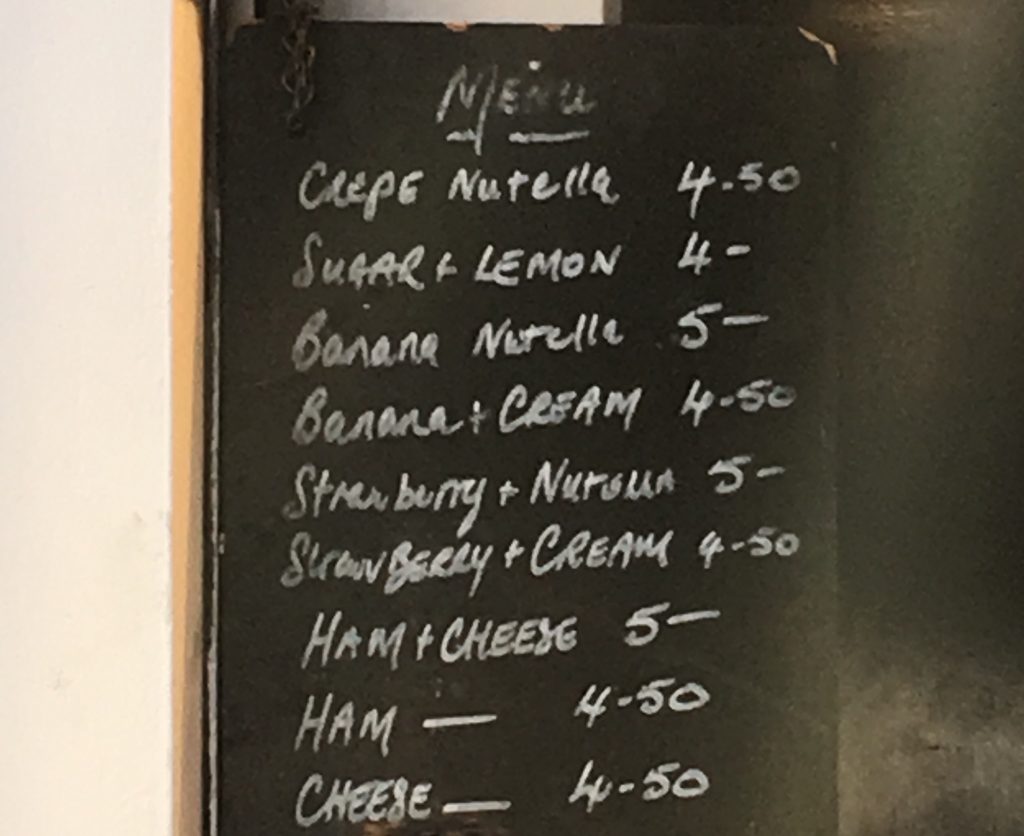 MENU
CREPE Nutella 4-50
SUGAR + LEMON 4-
Banana Nutella 5-
Banana + CREAM 4-50
Strawburry + Nutella 5-
StrawBERRY + CREAM 4-50
HAM + CHEESE 5-
HAM — 4-50
CHEESE — 4-50